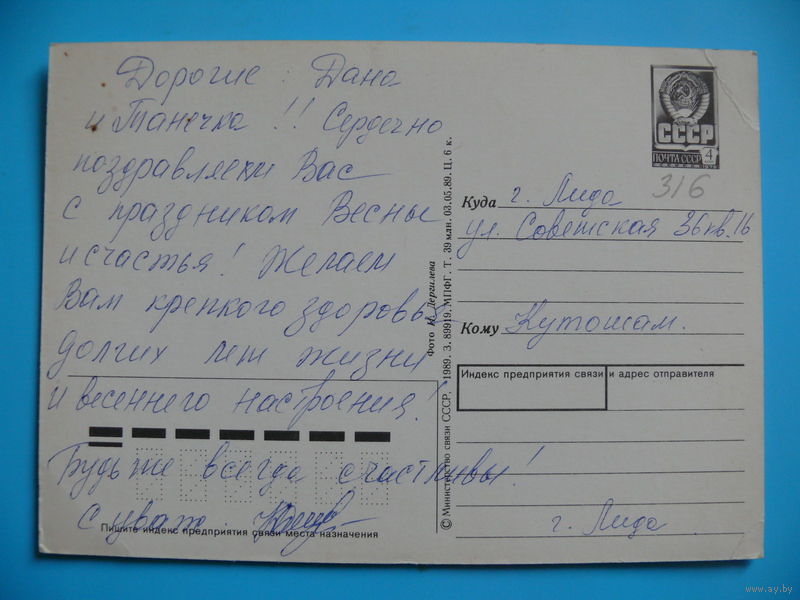 Дорогие: Дана
и Танечка!! Сердечно
поздравляем Вас
с праздником Весны
и счастья! Желаем
Вам крепкого здоровья
долгих лет жизни
и весеннего настроения!
Будьте же всегда счастливы!
С уваж.
Пишите индекс предприятия связи места назначения
© Министерство связи СССР, 1989. З. 89919. МПФГ. Т. 39 млн. 03.05.89. Ц. 6 к.
Фото И. Дергилева
СССР
ПОЧТА СССР 4
316
Куда г. Лида
ул. Советская 36 кв. 16
Кому Кутошам.
Индекс предприятия связи и адрес отправителя
г. Лида
www.ay.by